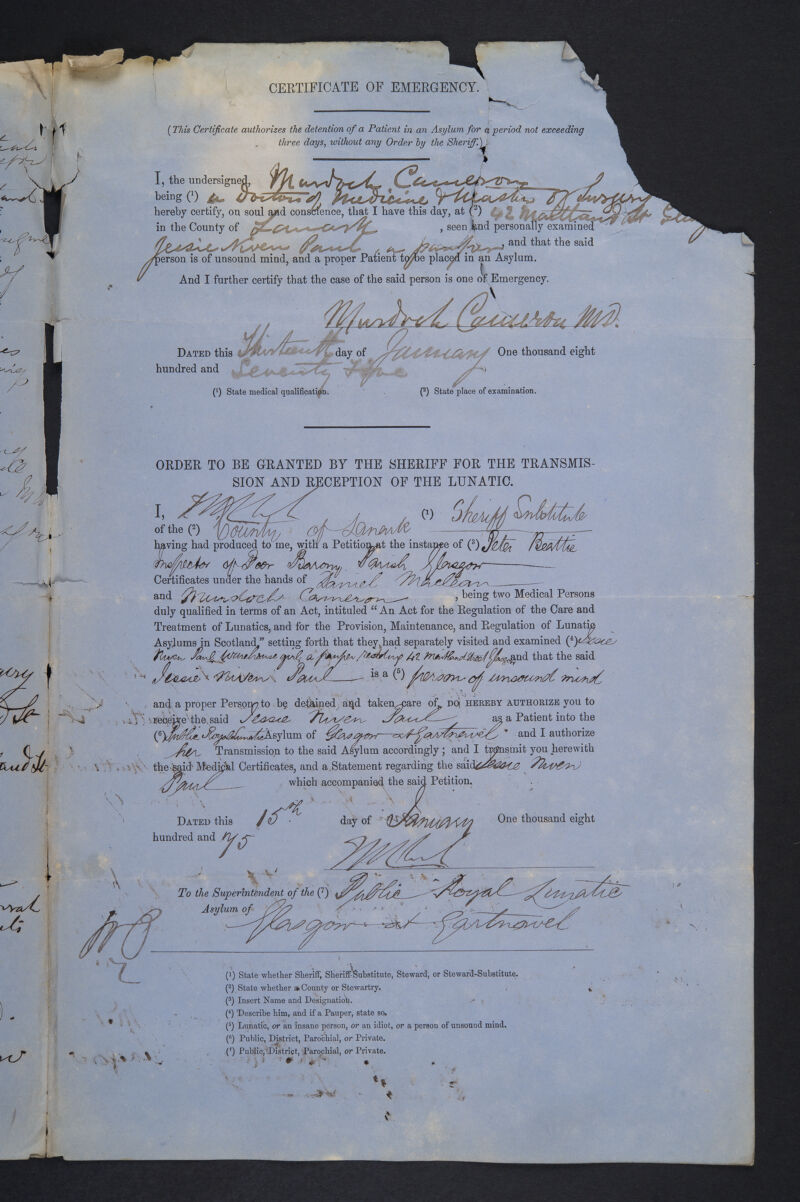 CERTIFICATE OF EMERGENCY.
(This Certificate authorizes the detention of a Patient in an Asylum for a period not exceeding
three days, without any Order by the Sheriff.)
I, the undersigned, Murdoch Cameron
being (¹) a Doctor of Medicine & Master of Surgery
hereby certify, on soul and conscience, that I have this day, at (²) 42 Maitland St
in the County of Lanark, seen and personally examined
Jessie Niven Paul, a pauper and that the said
person is of unsound mind, and a proper Patient to be placed in an Asylum.
And I further certify that the case of the said person is one of Emergency.
Murdoch Cameron MD.
DATED this Thirteenth day of January One thousand eight
hundred and Seventy Five
(¹) State medical qualification. (²) State place of examination.
ORDER TO BE GRANTED BY THE SHERIFF FOR THE TRANSMIS-
SION AND RECEPTION OF THE LUNATIC.
I, (¹) Sheriff Substitute
of the (²) County of Lanark
having had produced to me, with a Petition at the instance of (³) Peter Beattie
Inspector of Poor Barony Parish Glasgow
Certificates under the hands of Daniel Maclean
and Murdoch Cameron, being two Medical Persons
duly qualified in terms of an Act, intituled “An Act for the Regulation of the Care and
Treatment of Lunatics, and for the Provision, Maintenance, and Regulation of Lunatic
Asylums in Scotland,” setting forth that they had separately visited and examined (⁴) Jessie
Niven Paul Warehouse girl, a pauper, residing 42 Maitland Street and that the said
Jessie Niven Paul is a (⁵) person of unsound mind
and a proper Person to be detained and taken care of, DO HEREBY AUTHORIZE you to
receive the said Jessie Niven Paul as a Patient into the
(⁶) Public Royal Lunatic Asylum of Glasgow at Gartnavel and I authorize
her Transmission to the said Asylum accordingly; and I transmit you herewith
the said Medical Certificates, and a Statement regarding the said Jessie Niven
Paul which accompanied the said Petition.
DATED this 15th day of January One thousand eight
hundred and 75
To the Superintendent of the (⁷) Public Royal Lunatic
Asylum of Glasgow at Gartnavel
(¹) State whether Sheriff, Sheriff Substitute, Steward, or Steward-Substitute.
(²) State whether a County or Stewartry.
(³) Insert Name and Designation.
(⁴) Describe him, and if a Pauper, state so.
(⁵) Lunatic, or an insane person, or an idiot, or a person of unsound mind.
(⁶) Public, District, Parochial, or Private.
(⁷) Public, District, Parochial, or Private.